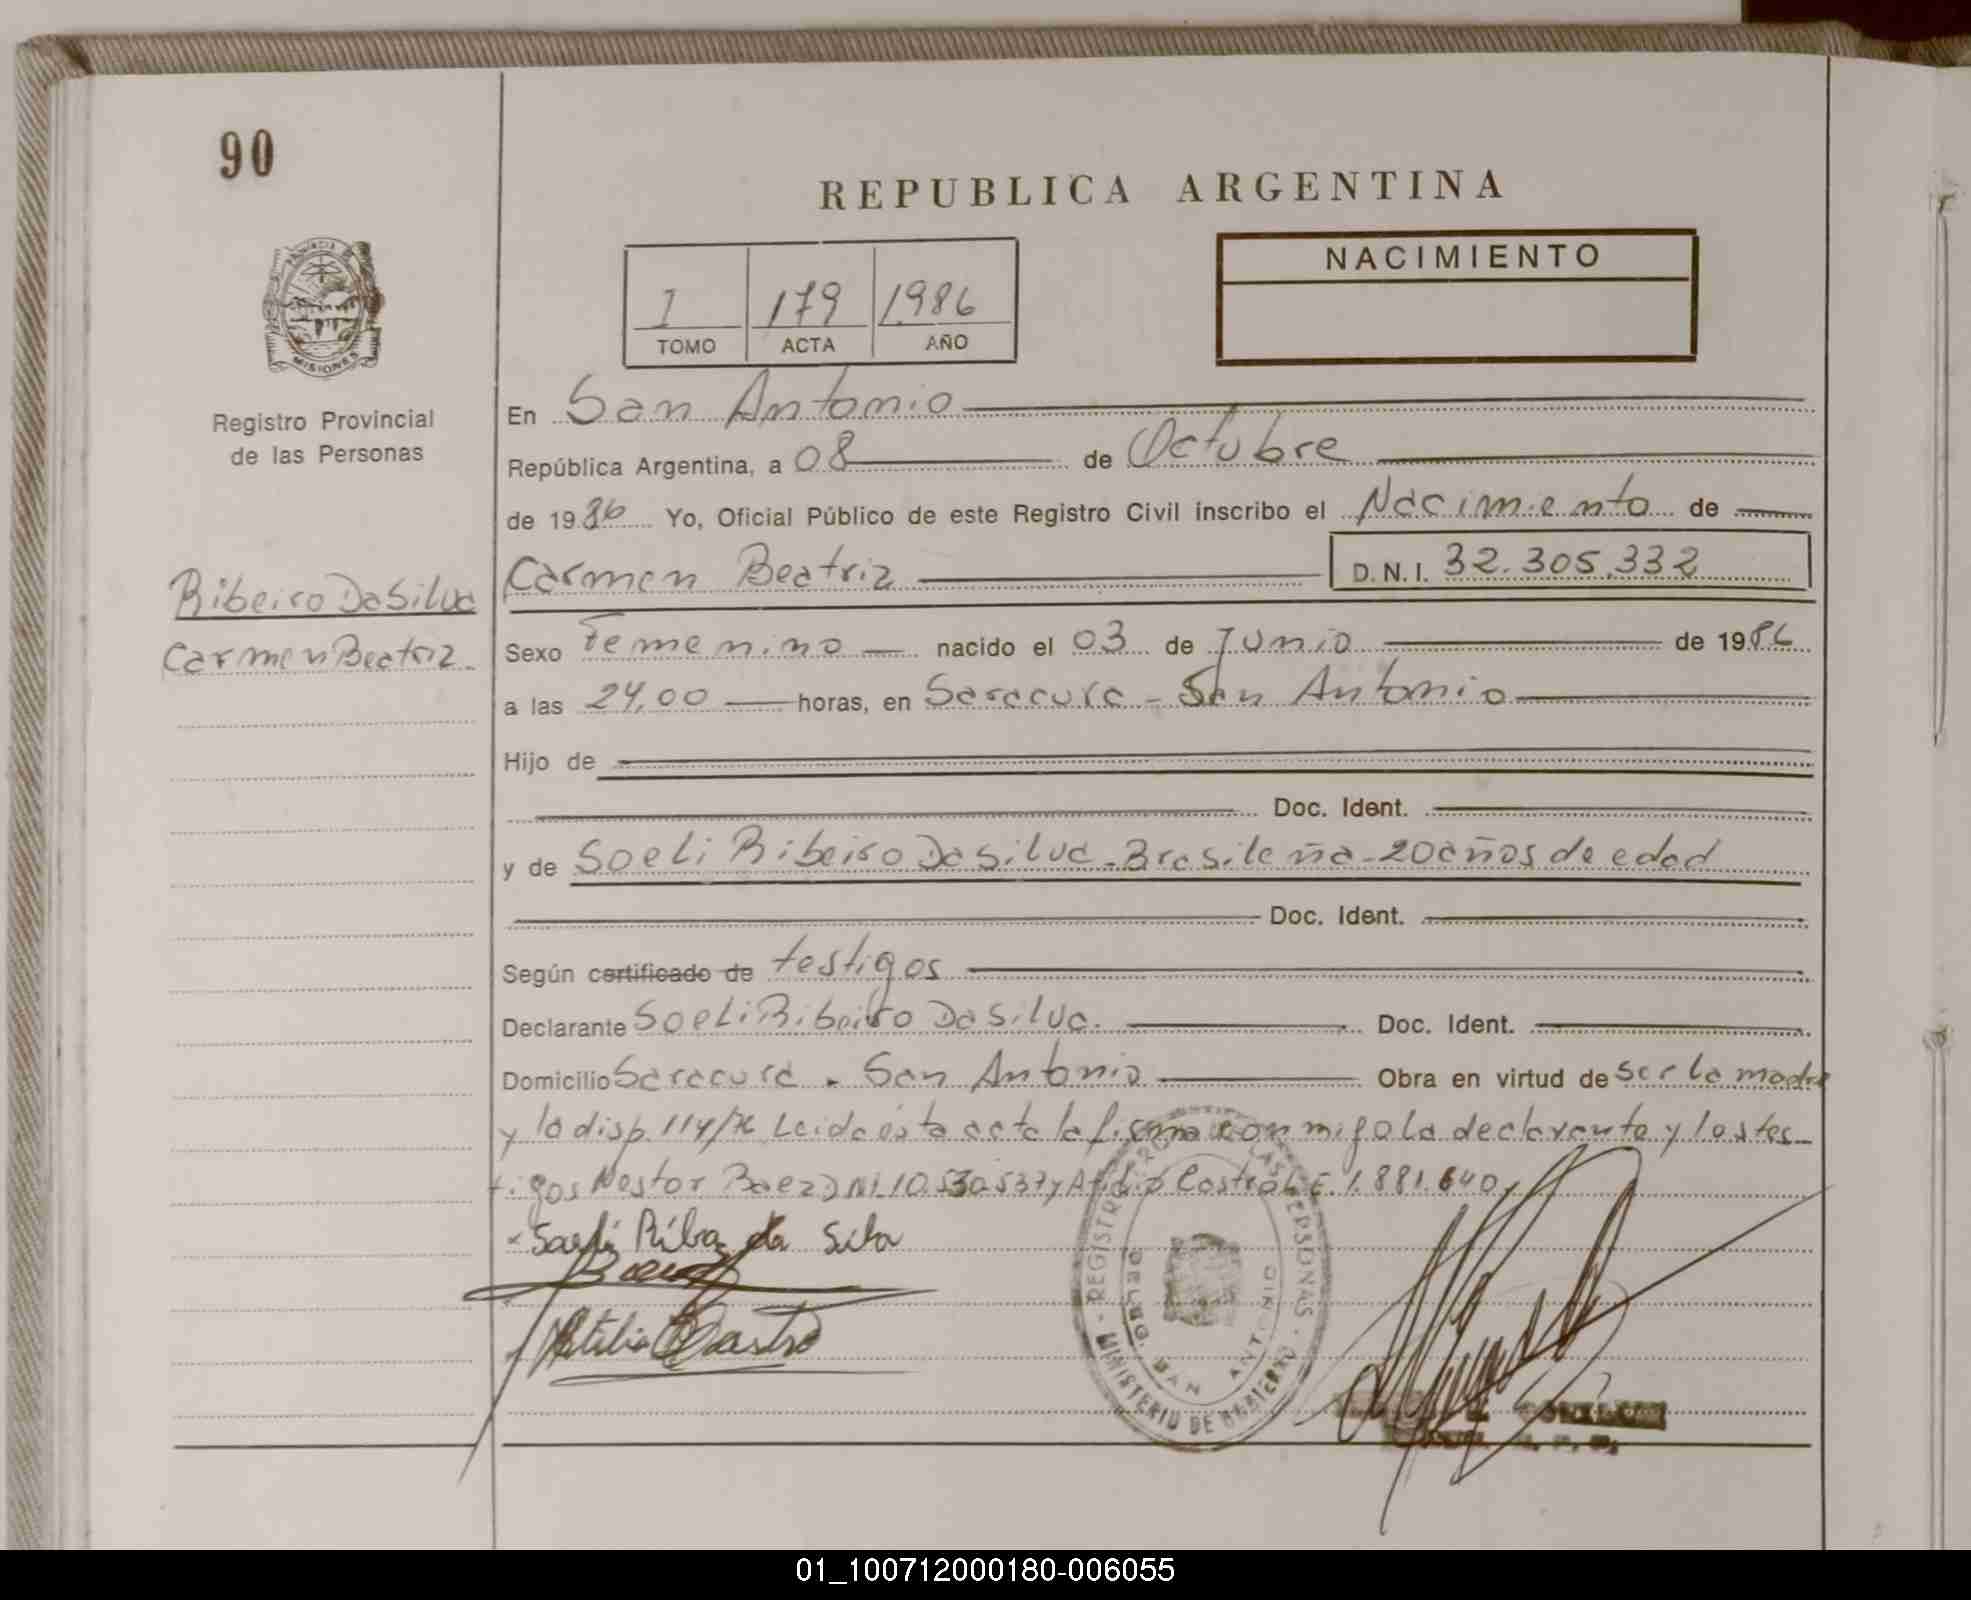 90
REPUBLICA ARGENTINA
NACIMIENTO
I 179 1986
TOMO ACTA AÑO
PROVINCIA DE MISIONES
Registro Provincial
de las Personas
Ribeiro Da Silva
Carmen Beatriz
En San Antonio
República Argentina, a 08 de Octubre
de 1986 Yo, Oficial Público de este Registro Civil inscribo el Nacimiento de
Carmen Beatriz D.N.I. 32.305.332
Sexo Femenino nacido el 03 de Junio de 1986
a las 24,00 horas, en Saracura - San Antonio
Hijo de
Doc. Ident.
y de Soeli Ribeiro Da Silva - Brasileña - 20 años de edad
Doc. Ident.
Según certificado de testigos
Declarante Soeli Ribeiro Da Silva. Doc. Ident.
Domicilio Saracura - San Antonio Obra en virtud de ser la madre
y la disp. 114/76 Leida ésta acta la firma conmigo la declarante y los tes-
tigos Nestor Baez DNI 10.530.537 y Atilio Castro L.E. 1.881.640
Ribe da Silva
Baez
Atilio Castro
REGISTRO PROV. DE LAS PERSONAS
DELEG. SAN ANTONIO
MINISTERIO DE GOBIERNO
GONZALEZ
01_100712000180-006055